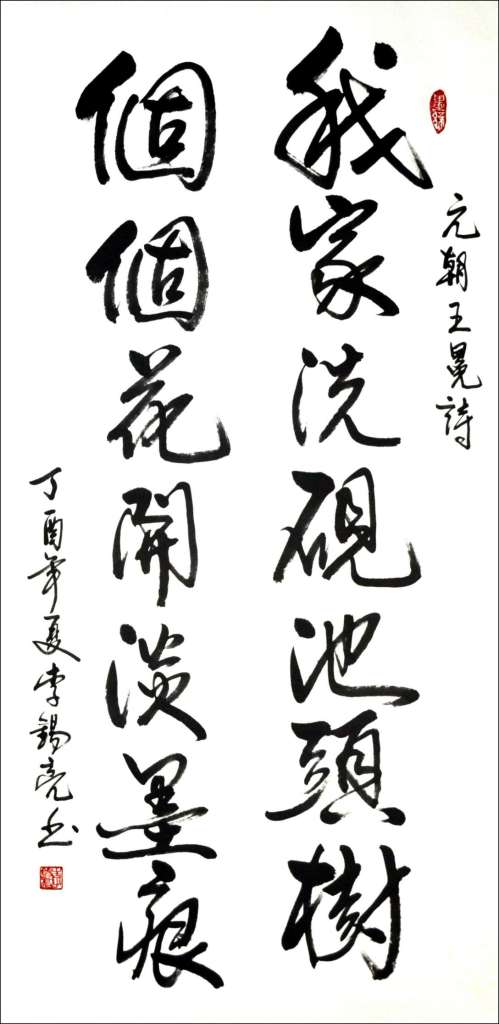 元朝王冕詩
我家洗硯池頭樹
個個花開淡墨痕
丁酉年夏李錫亮書